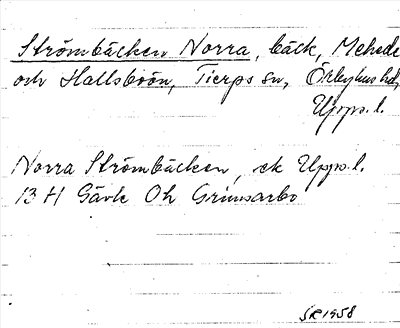 Strömbäcken Norra, bäck, Mehede
och Hallsboön, Tierps sn, Örbyhus hd,
Upps. l.
Norra Strömbäcken, ek Upps. l.
13 H Gävle Oh Grimsarbo
SR 1958